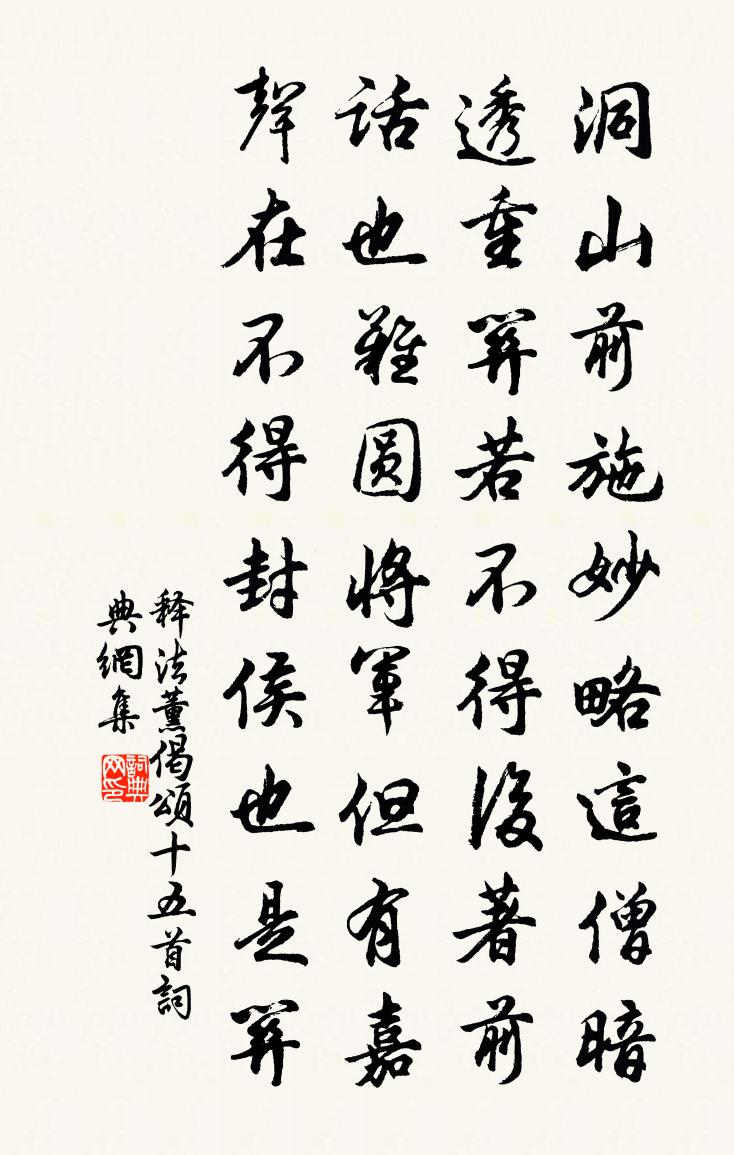 洞山前施妙略這僧暗
透重關若不得後著前
話也難圆將軍但有嘉
聲在不得封侯也是關
释法薰偈頌十五首詞
典網集
詞典
网印